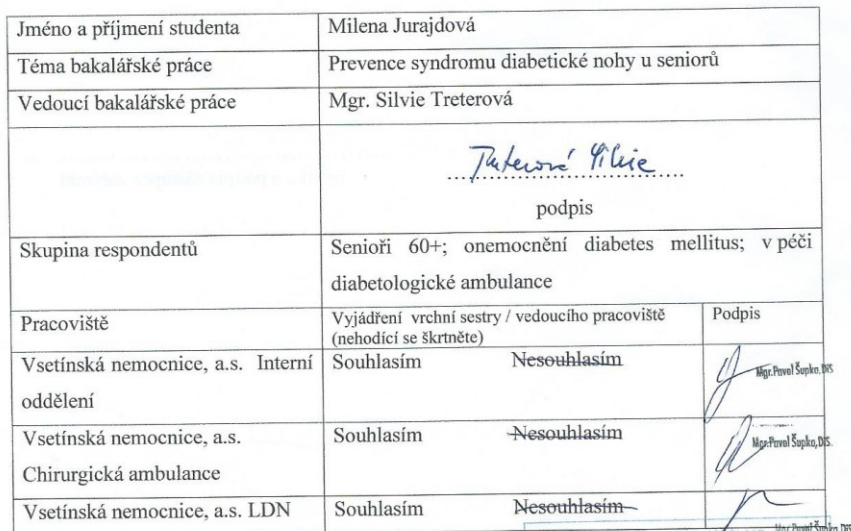 Jméno a příjmení studenta
Milena Jurajdová
Téma bakalářské práce
Prevence syndromu diabetické nohy u seniorů
Vedoucí bakalářské práce
Mgr. Silvie Treterová
Treterová Silvie
podpis
Skupina respondentů
Senioři 60+; onemocnění diabetes mellitus; v péči
diabetologické ambulance
Pracoviště
Vyjádření vrchní sestry / vedoucího pracoviště
(nehodící se škrtněte)
Podpis
Vsetínská nemocnice, a.s. Interní
oddělení
Souhlasím Nesouhlasím
Mgr. Pavel Šupka, DiS
Vsetínská nemocnice, a.s.
Chirurgická ambulance
Souhlasím Nesouhlasím
Mgr. Pavel Šupka, DiS.
Vsetínská nemocnice, a.s. LDN
Souhlasím Nesouhlasím
Mgr. Pavel Šupka, DiS